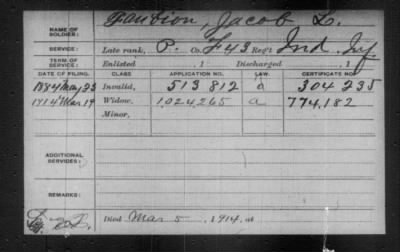 NAME OF SOLDIER: Faution, Jacob L.
SERVICE: Late rank, P. Co. F 43 Reg't Ind. Inf
TERM OF SERVICE: Enlisted , 1 Discharged , 1
DATE OF FILING. CLASS APPLICATION NO. LAW. CERTIFICATE NO.
1884 May 23 Invalid, 513 812 a 304 235
1914 Mar 19 Widow, 1,024,265 a 774,182
Minor,
ADDITIONAL SERVICES:
REMARKS:
Died Mar 5 , 1914, at